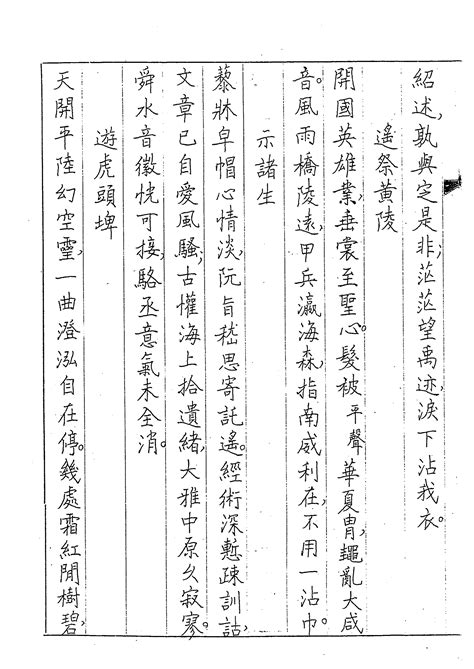 紹述,孰與定是非;茫茫望禹迹,淚下沾我衣。
遙祭黃陵
開國英雄業,垂裳至聖心。髮被平聲華夏冑,黽亂大咸
音。風雨橋陵遠,甲兵瀛海森,指南威利在,不用一沾巾。
示諸生
藜牀皁帽心情淡,阮旨嵇思寄託遙。經術深慙疎訓詁,
文章已自愛風騷;古懽海上拾遺緒,大雅中原久寂寥。
舜水音徽恍可接,駱丞意氣未全消。
遊虎頭埤
天開平陸幻空靈,一曲澄泓自在停。幾處霜紅閒樹碧,